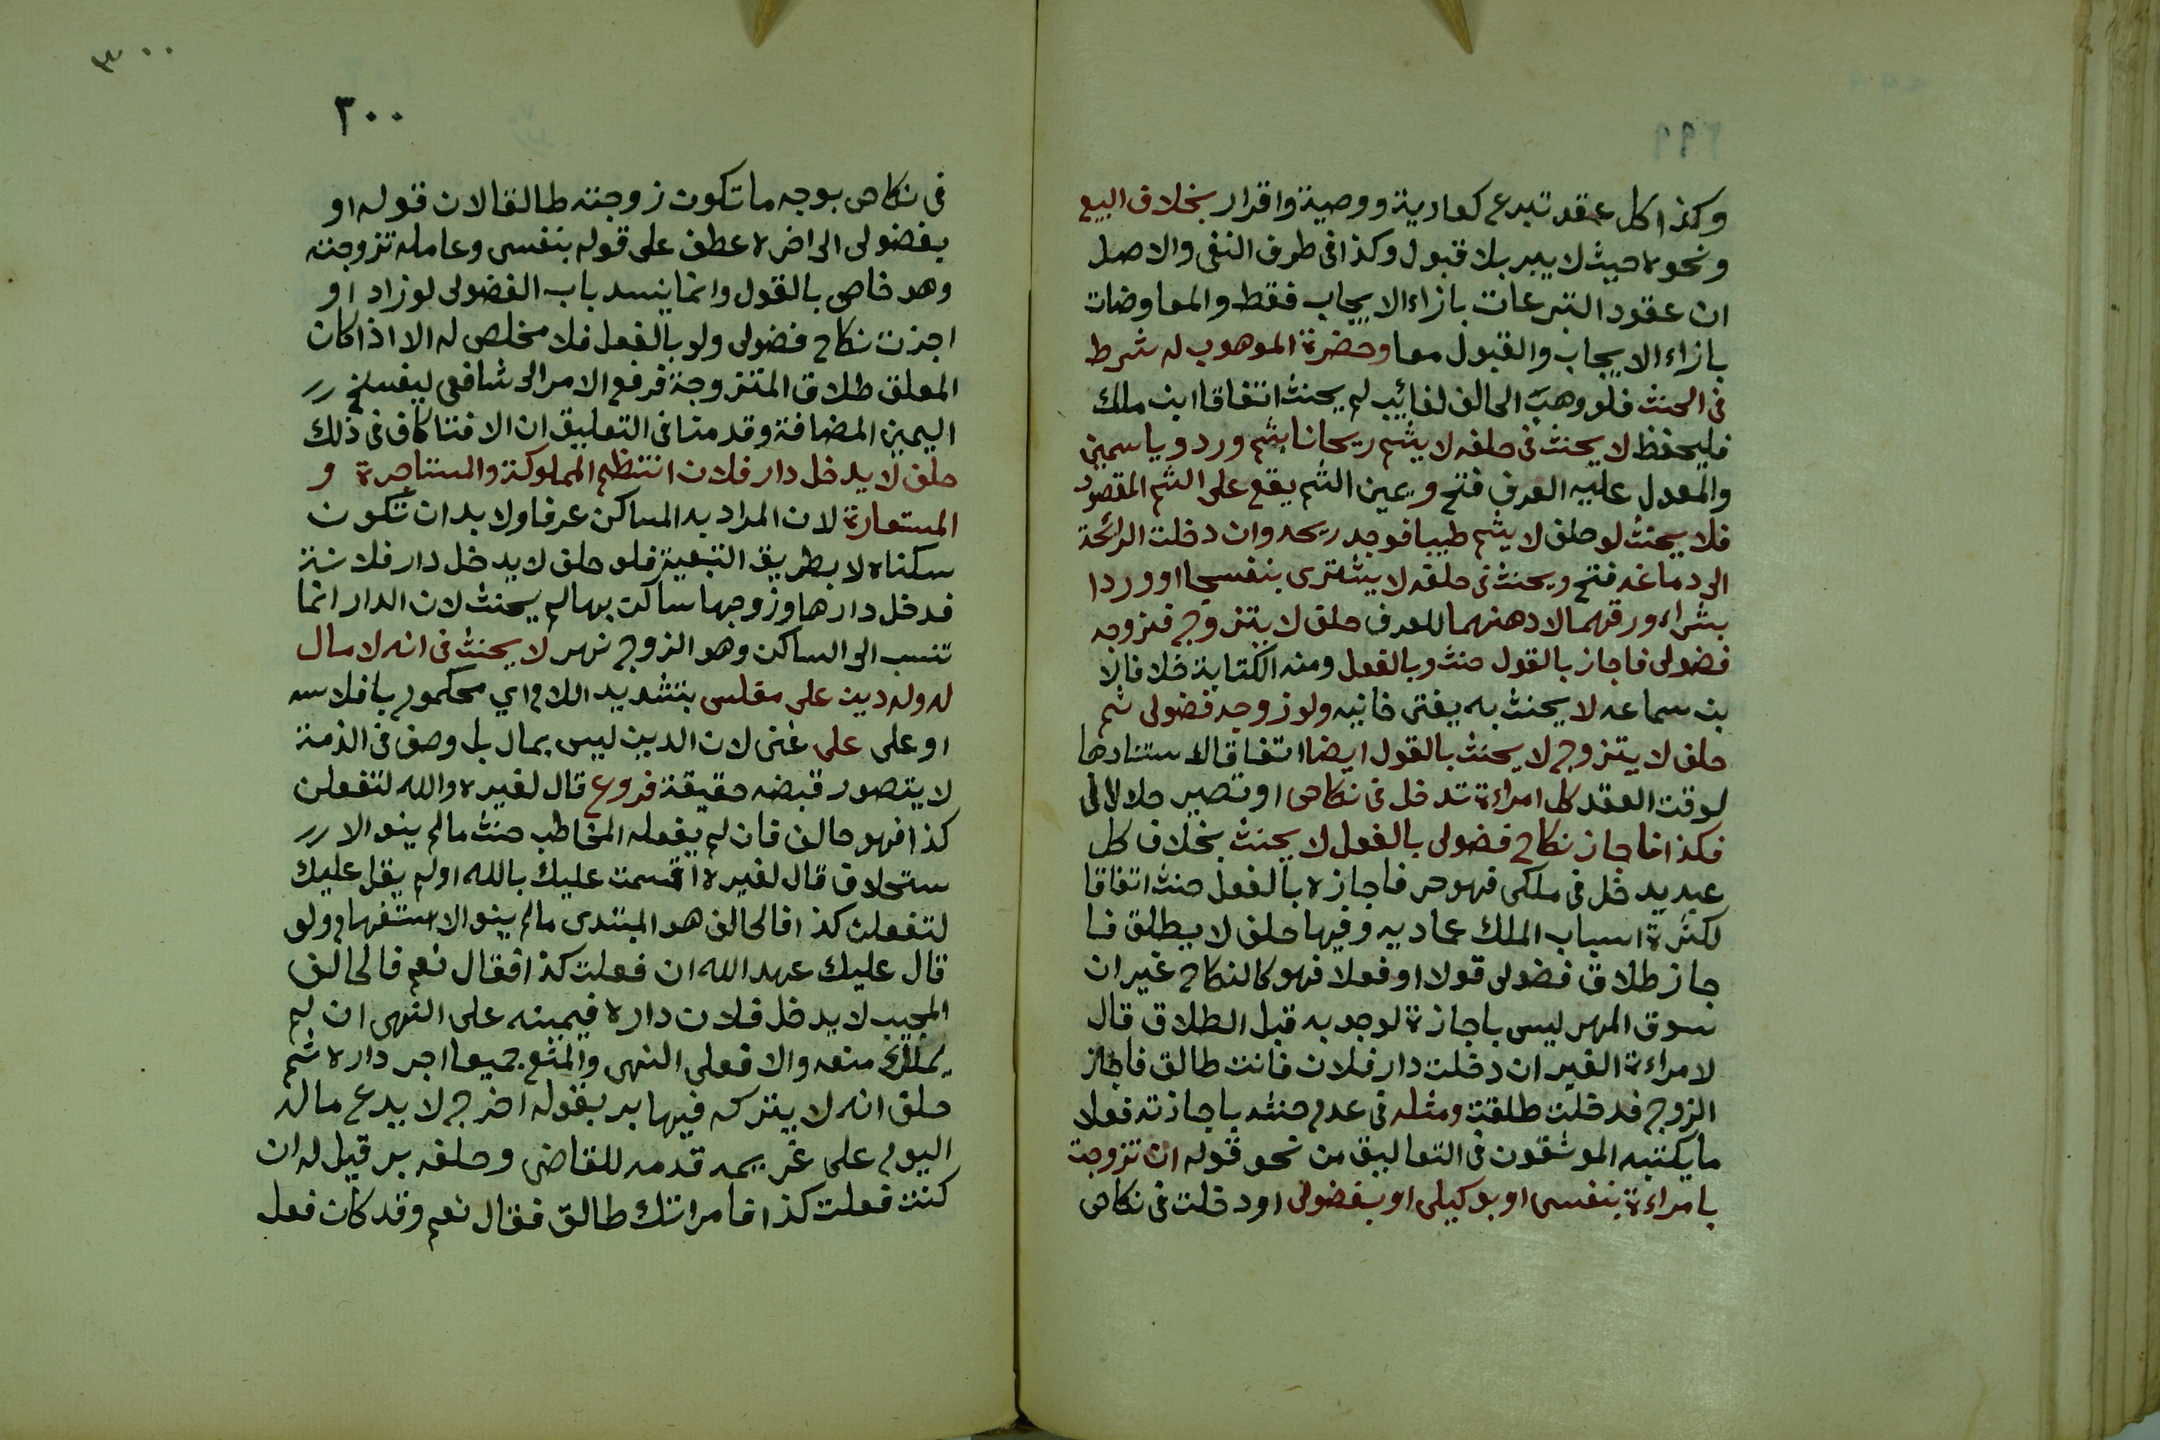 وكذا كل عقد تبرع كعارية ووصية واقرار بخلاف البيع
ونحوه حيث لا يبر بلا قبول وكذا فى طرف النفى والاصل
ان عقود التبرعات بازاء الايجاب فقط والمعاوضات
بازاء الايجاب والقبول معا وحضرة الموهوب له شرط
فى الحنث فلو وهب الحالف لغائب لم يحنث اتفاقا ابن ملك
فليحفظ لا يحنث فى حلفه لا يشم ريحانا بشم ورد وياسمين
والمعول عليه العرف فتح ويمين الشم يقع على الشم المقصود
فلا يحنث لو حلف لا يشم طيبا فوجد ريحه وان دخلت الرائحة
الى دماغه فتح ويحنث فى حلفه لا يشترى بنفسجا او وردا
بشراء ورقهما لا دهنهما للعرف حلف لا يتزوج فزوجه
فضولى فاجاز بالقول حنث وبالفعل ومنه الكتابة خلافا لا
بن سماعه لا يحنث به يفتى خانيه ولو زوجه فضولى ثم
حلف لا يتزوج لا يحنث بالقول ايضا اتفاقا لاستنادها
لوقت العقد كل امراءة تدخل فى نكاحى او تصير حلالا لى
فكذا فاجاز نكاح فضولى بالفعل لا يحنث بخلاف كل
عبد يدخل فى ملكى فهو حر فاجازه بالفعل حنث اتفاقا
لكثرة اسباب الملك عماديه وفيها حلف لا يطلق فا
جاز طلاق فضولى قولا او فعلا فهو كالنكاح غير ان
سوق المهر ليس باجازة لوجوبه قبل الطلاق قال
لامراءة الغير ان دخلت دار فلان فانت طالق فاجاز
الزوج فدخلت طلقت ومثله فى عدم حنثه باجازته فعلا
ما يكتبه الموثقون فى التعاليق من نحو قوله ان تزوجت
بامراءة بنفسى او بوكيلى او بفضولى او دخلت فى نكاحى
٣٠٠
٣٠٠
فى نكاحى بوجه ما تكون زوجته طالقا لان قوله او
بفضولى الى اخره عطف على قوله بنفسى وعامله تزوجت
وهو خاص بالقول وانما ينسد باب الفضولى لو زاد او
اجزت نكاح فضولى ولو بالفعل فلا مخلص له الا اذا كان
المعلق طلاق المتزوجة فرفع الامر الى شافعى ليفسخ
اليمين المضافة وقدمنا فى التعليق ان الافتا كاف فى ذلك
حلف لا يدخل دار فلان انتظم المملوكة والمستاجرة و
المستعارة لان المراد به المساكن عرفا ولا بد ان تكون
سكناه لا بطريق التبعية فلو حلف لا يدخل دار فلانة
فدخل دارها وزوجها ساكن بها لم يحنث لان الدار انما
تنسب الى الساكن وهو الزوج نهر لا يحنث فى انه لا مال
له وله دين على مفلس بتشديد اللام اي محكموم بافلاسه
او على على غنى لان الدين ليس بمال بل وصف فى الذمة
لا يتصور قبضه حقيقة فروع قال لغيره والله لتفعلن
كذا فهو حالف فان لم يفعله المخاطب حنث ما لم ينو الا
ستحلاف قال لغيره اقسمت عليك بالله او لم يقل عليك
لتفعلن كذا فالحالف هو المبتدى ما لم ينو الاستفهام ولو
قال عليك عهد الله ان فعلت كذا فقال نعم فالحالف
المجيب لا يدخل فلان داره فيمينه على النهى ان لم
يملك منعه والا فعلى النهى والمنع جميعا اجر داره ثم
حلف انه لا يتركه فيها بر بقوله اخرج لا يدع ماله
اليوم على غريمه قدمه للقاضى وحلفه بر قيل له ان
كنت فعلت كذا فامراتك طالق فقال نعم وقد كان فعل